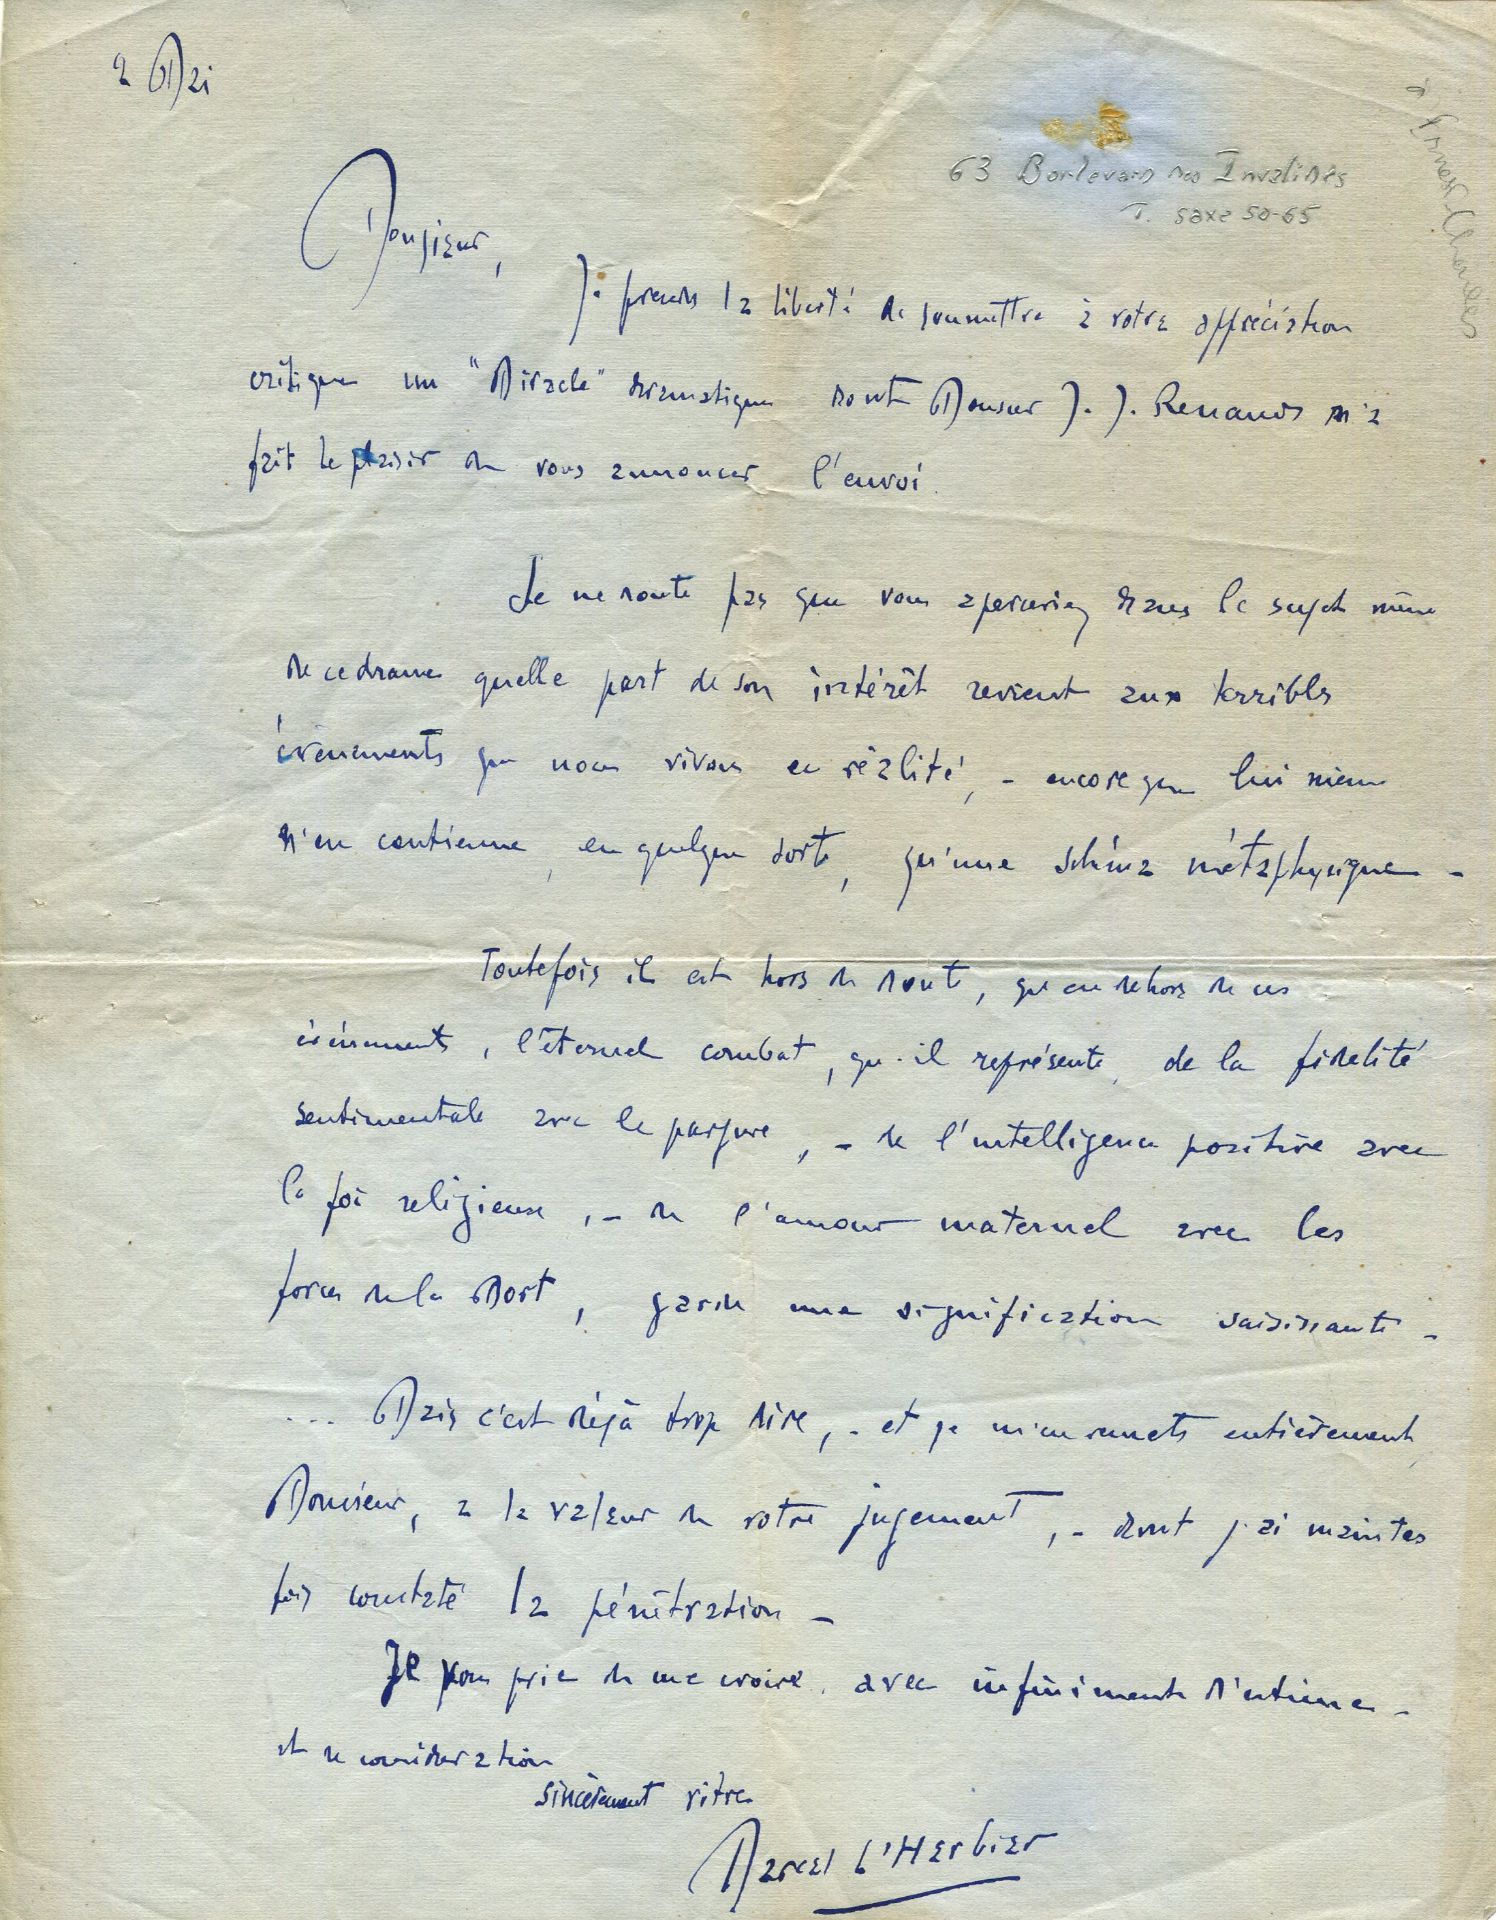 2 Mai
63 Boulevard des Invalides
T. Saxe 50-65
à Ernest Charles
Monsieur,
Je prends la liberté de soumettre à votre appréciation
critique un "Miracle" dramatique dont Monsieur J. J. Renaud m'a
fait le plaisir de vous annoncer l'envoi.
Je ne doute pas que vous aperceviez dans le sujet même
de ce drame quelle part de son intérêt revient aux terribles
évènements que nous vivons en réalité, - encore que lui même
n'en contienne, en quelque sorte, qu'une schéma métaphysique -
Toutefois il est hors de doute, qu'en dehors de ces
évènements, l'éternel combat, qu'il représente, de la fidelité
sentimentale avec le parjure, - de l'intelligence positive avec
la foi religieuse, - de l'amour maternel avec les
forces de la Mort, garde une signification saisissante -
... Mais c'est déjà trop dire, - et je m'en remets entièrement,
Monsieur, a la valeur de votre jugement, - dont j'ai maintes
fois constaté la pénétration -
Je vous prie de me croire, avec infiniment d'estime -
et de consideration
sincèrement vôtre
Marcel L'Herbier